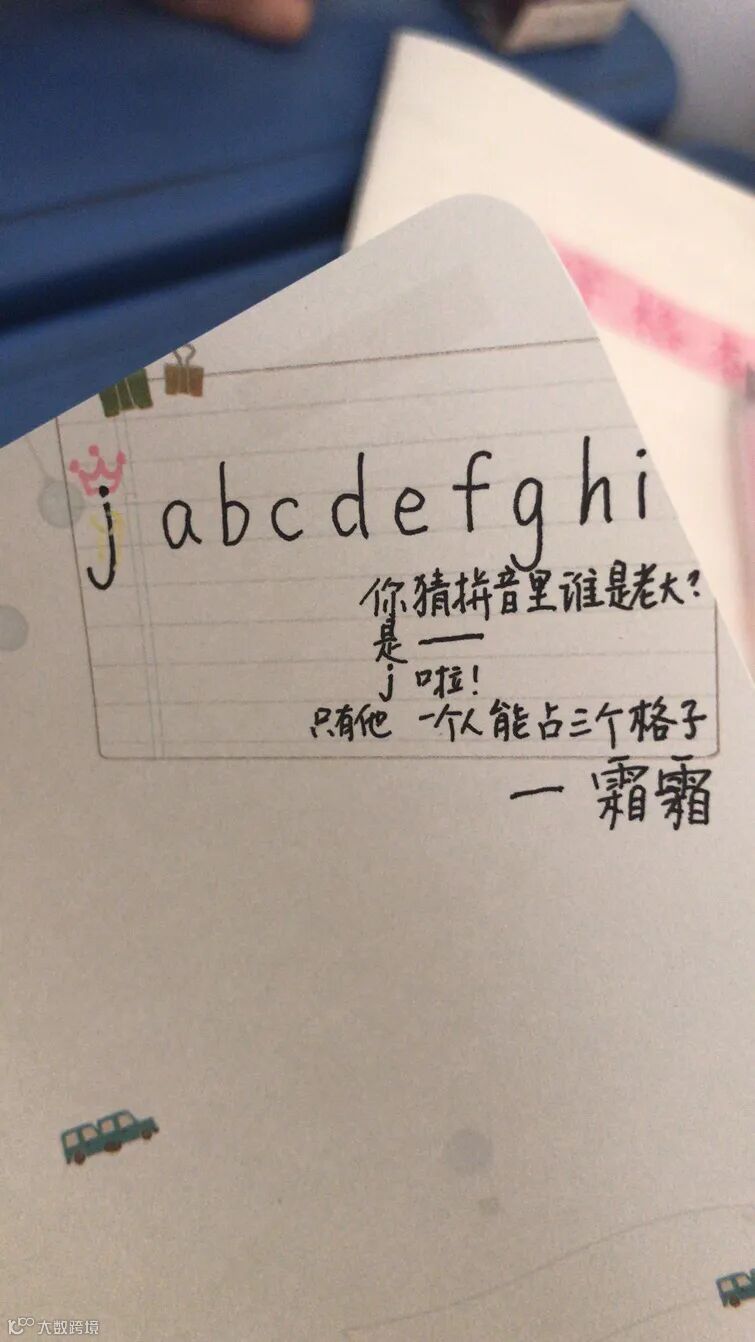 j a b c d e f g h i
你猜拼音里谁是老大?
是——
j 啦!
只有他 一个人能占三个格子
— 霜霜
大数跨境